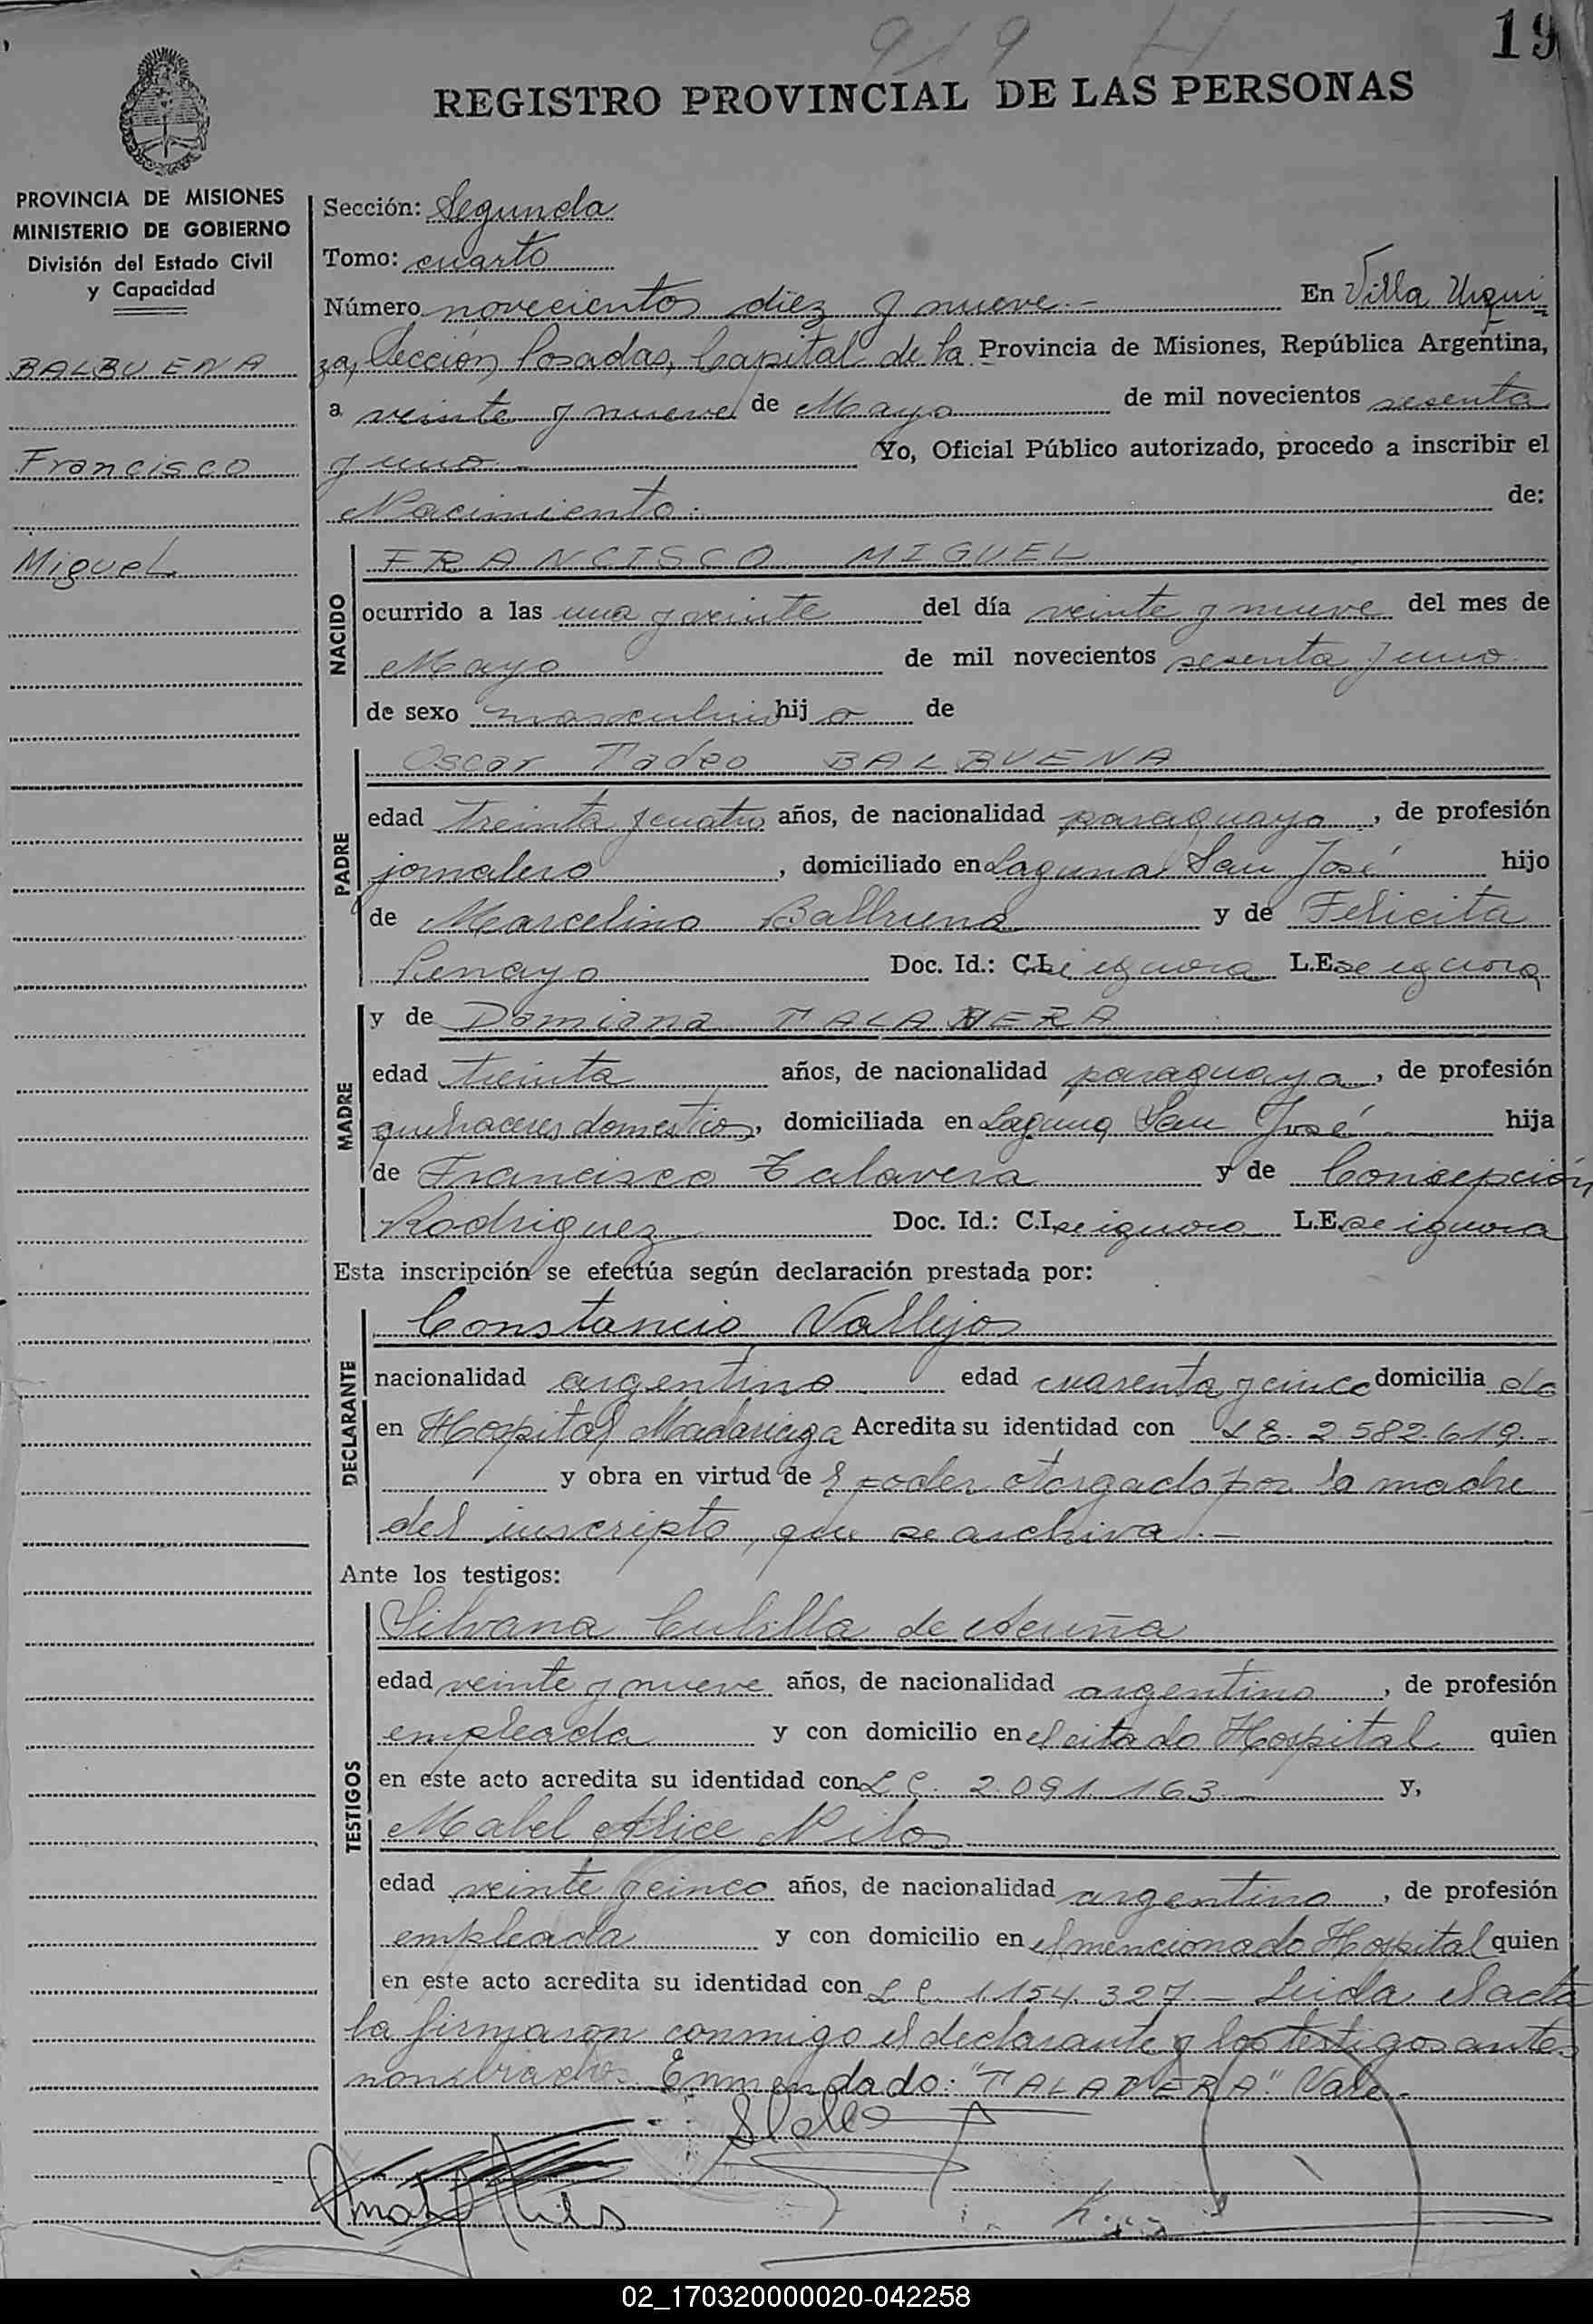 919 H
19
REGISTRO PROVINCIAL DE LAS PERSONAS
PROVINCIA DE MISIONES
MINISTERIO DE GOBIERNO
División del Estado Civil
y Capacidad
BALBUENA
Francisco
Miguel
Sección: Segunda
Tomo: cuarto
Número novecientos diez y nueve.- En Villa Urqui
za, Sección Posadas, Capital de la Provincia de Misiones, República Argentina,
a veinte y nueve de Mayo de mil novecientos sesenta
y uno.- Yo, Oficial Público autorizado, procedo a inscribir el
Nacimiento. de:
NACIDO
FRANCISCO MIGUEL
ocurrido a las una y veinte del día veinte y nueve del mes de
Mayo de mil novecientos sesenta y uno.
de sexo masculino hij o de
PADRE
Oscar Tadeo BALBUENA
edad treinta y cuatro años, de nacionalidad paraguayo, de profesión
jornalero, domiciliado en Laguna San José hijo
de Marcelino Balbuena y de Felicita
Penayo Doc. Id.: C.I. se ignora L.E. se ignora
MADRE
y de Damiana TALAVERA
edad treinta años, de nacionalidad paraguaya, de profesión
quehaceres domesticos, domiciliada en Laguna San José hija
de Francisco Talavera y de Concepción
Rodriguez Doc. Id.: C.I. se ignora L.E. se ignora
Esta inscripción se efectúa según declaración prestada por:
DECLARANTE
Constancio Vallejos
nacionalidad argentino edad cuarenta y cinco domicilia do
en Hospital Madariaga Acredita su identidad con L E. 2.582.619.-
y obra en virtud de el poder otorgado por la madre
del inscripto que se archiva.-
Ante los testigos:
TESTIGOS
Silvana Cubilla de Acuña
edad veinte y nueve años, de nacionalidad argentina, de profesión
empleada y con domicilio en el citado Hospital quien
en este acto acredita su identidad con L C. 2.091.163 y,
Mabel Alice Nilos
edad veinte y cinco años, de nacionalidad argentina, de profesión
empleada y con domicilio en el mencionado Hospital quien
en este acto acredita su identidad con L C. 1.154.327.- Leida el acta
la firmaron conmigo el declarante y los testigos antes
nombrados. Enmendado: "TALAVERA" Vale.-
02_170320000020-042258